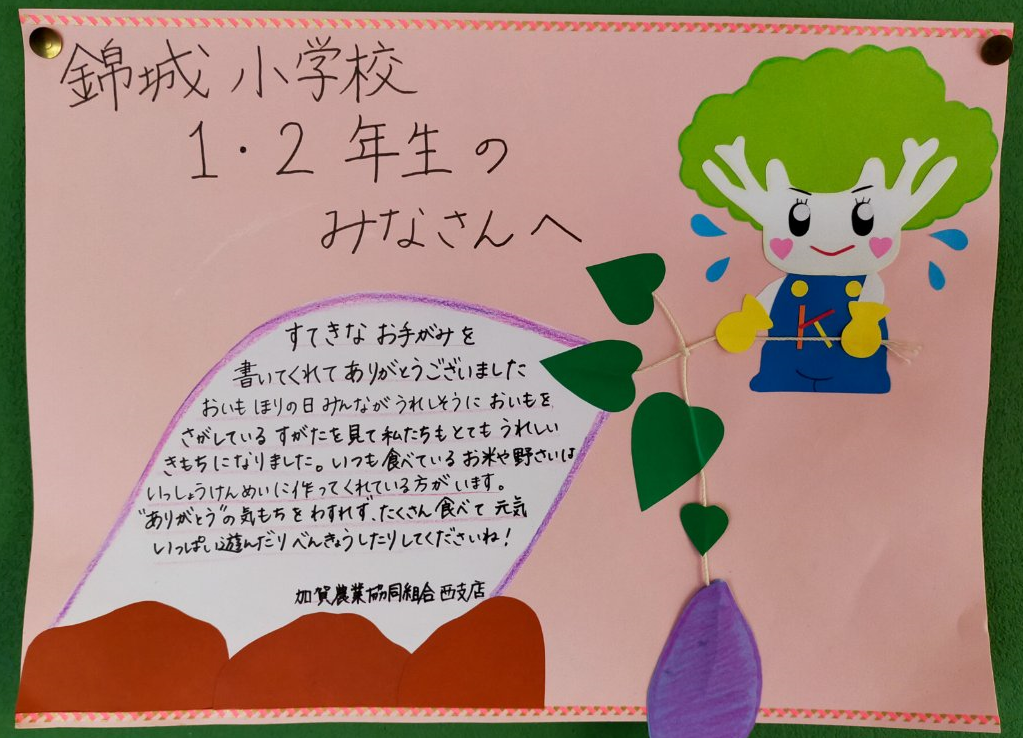 錦城小学校
1・2年生の
みなさんへ
すてきな お手がみを
書いてくれて ありがとうございました
おいもほりの日 みんなが うれしそうに おいもを
さがしている すがたを見て 私たちも とても うれしい
きもちになりました。いつも 食べている お米や野さいは
いっしょうけんめいに作ってくれている方がいます。
"ありがとう"の気もちをわすれず、たくさん食べて 元気
いっぱい遊んだり べんきょうしたりしてくださいね！
加賀農業協同組合 西支店
K